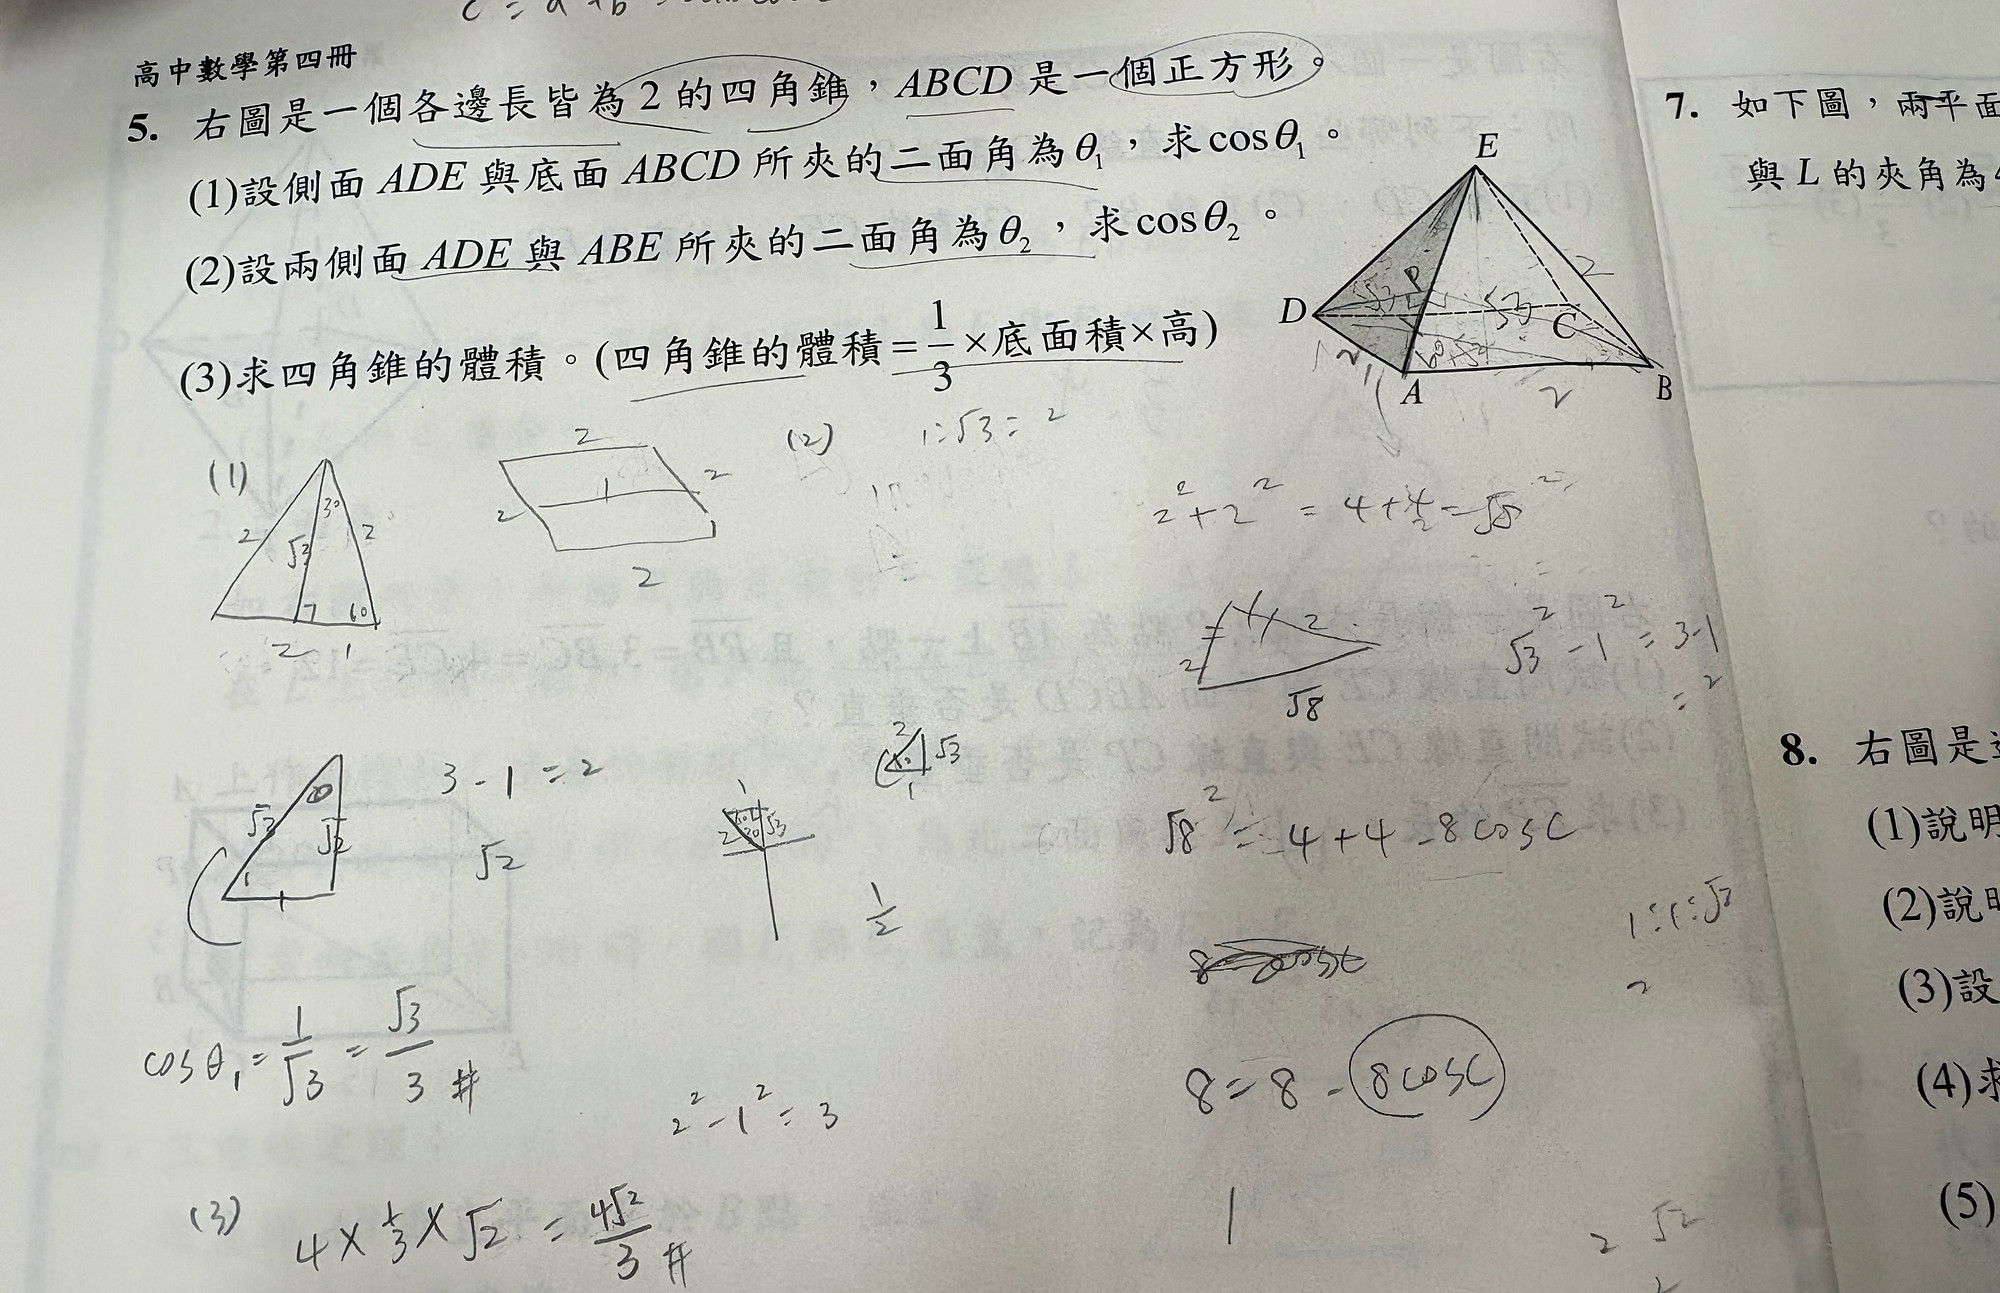 高中數學第四冊
5. 右圖是一個各邊長皆為2的四角錐，ABCD是一個正方形。
(1)設側面ADE與底面ABCD所夾的二面角為θ₁，求cosθ₁。
(2)設兩側面ADE與ABE所夾的二面角為θ₂，求cosθ₂。
(3)求四角錐的體積。(四角錐的體積=1/3×底面積×高)
E
D
P
C
A
B
2
2
(1)
2
√3
30
2
60
2
1
2
2
1
2
2
(2)
1:√3=2
2²+2²=4+4=√8
2
2
√8
√3²-1²=3-1
=2
√3
√2
1
3-1=2
√2
2
√3
1
1
2
√3
1/2
√8²=4+4-8cosC
1:1:√2
2
8=8-8cosC
cosθ₁=1/√3=√3/3 #
2²-1²=3
(3) 4×1/3×√2=4√2/3 #
2 √2
7. 如下圖，兩平面
與L的夾角為
8. 右圖是
(1)說明
(2)說明
(3)設
(4)求
(5)